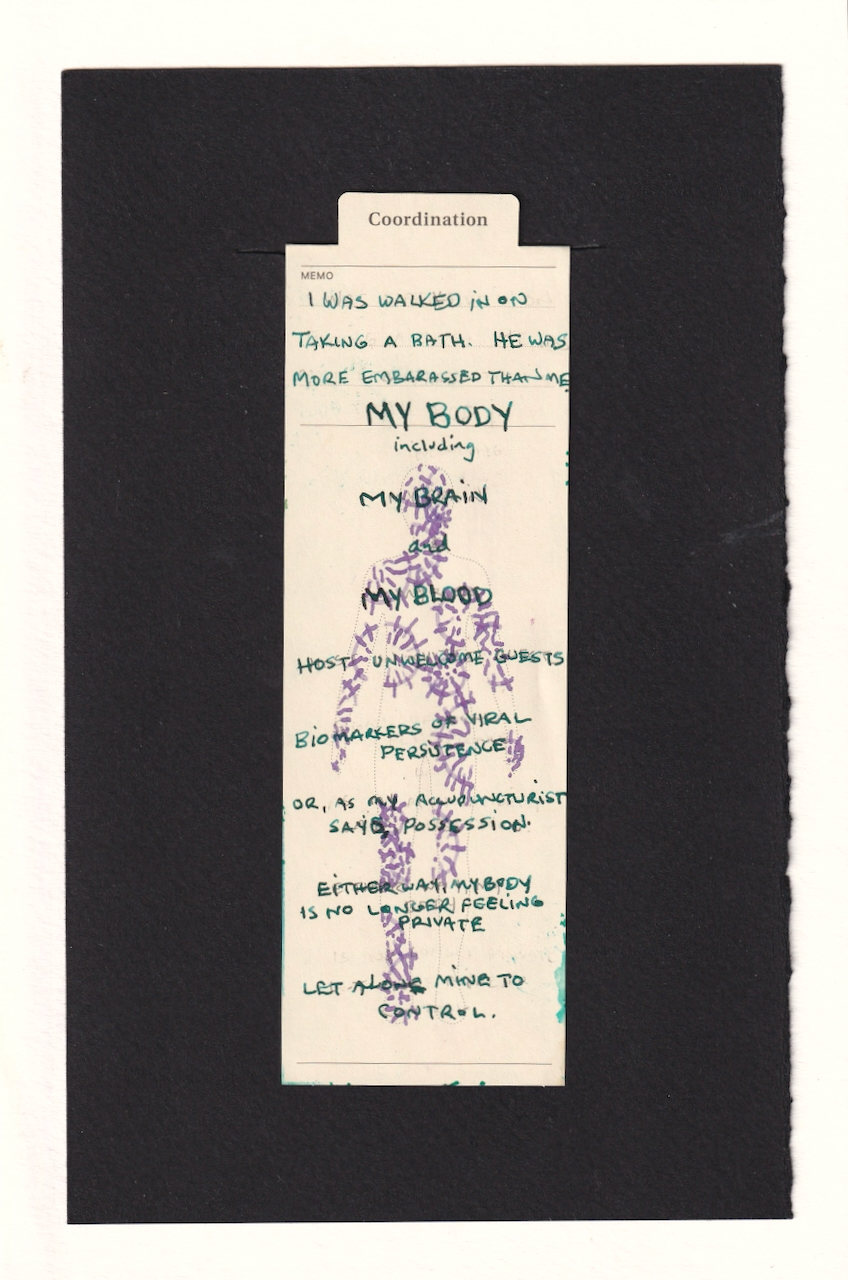 Coordination
MEMO
I WAS WALKED IN ON
TAKING A BATH. HE WAS
MORE EMBARASSED THAN ME
MY BODY
including
MY BRAIN
and
MY BLOOD
HOST UNWELCOME GUESTS
BIOMARKERS OF VIRAL
PERSITENCE
OR, AS MY ACCUPUNCTURIST
SAYS, POSSESSION.
EITHER WAY, MY BODY
IS NO LONGER FEELING
PRIVATE
LET ALONE MINE TO
CONTROL.